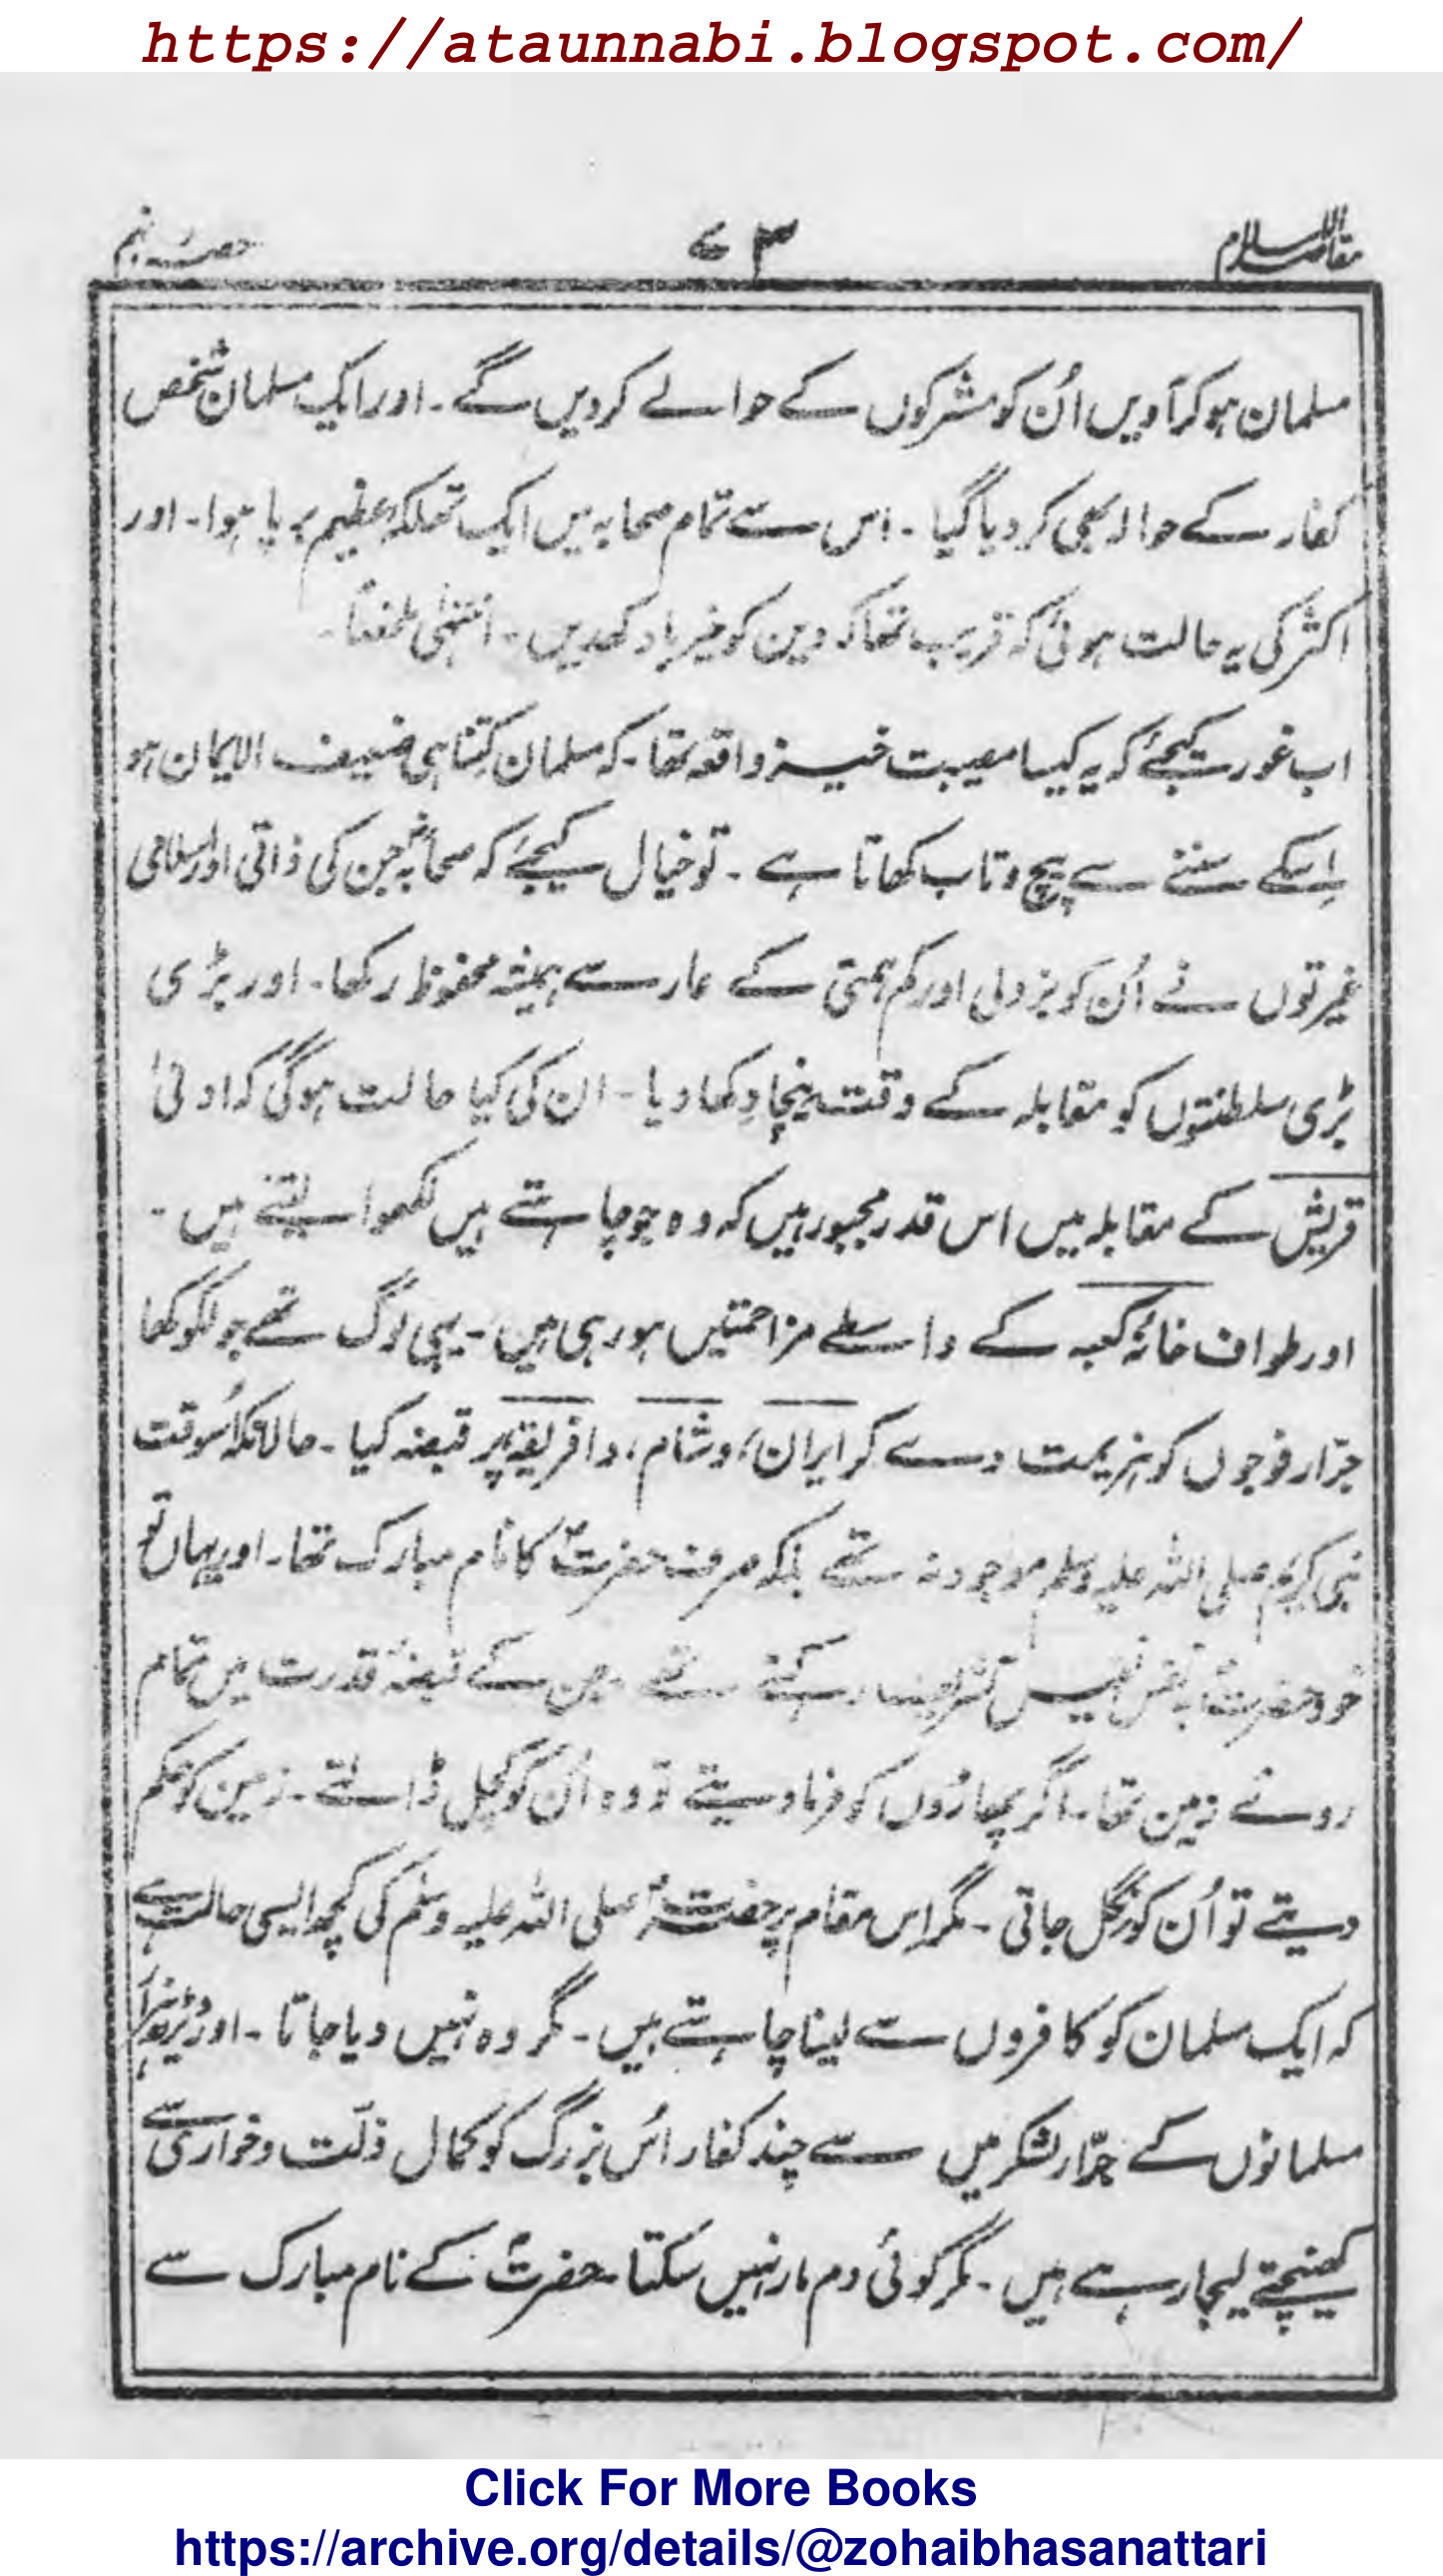 https://ataunnabi.blogspot.com/
مقاصد الاسلام ۷۳ حصہ نہم
مسلمان ہوکر آویں اُن کو مشرکوں کے حوالے کردیں گے ۔ اور ایک مسلمان شخص
کفار کے حوالہ بھی کردیا گیا ۔ اس سے تمام صحابہ میں ایک تھلکۂ عظیم برپا ہوا ۔ اور
اکثر کی یہ حالت ہوئی کہ قریب تھا کہ دین کو خیر باد کہدیں ۔ انتہیٰ ملخصاً ۔
اب غور کیجئے کہ یہ کیسا مصیبت خیز واقعہ تھا ۔ کہ مسلمان کتنا ہی ضعیف الایمان ہو
اِسکے سننے سے پیچ و تاب کھاتا ہے ۔ تو خیال کیجئے کہ صحابہؓ جن کی ذاتی اور اسلامی
غیرتوں نے اُن کو بزدلی اور کم ہمتی کے عار سے ہمیشہ محفوظ رکھا ۔ اور بڑی
بڑی سلطنتوں کو مقابلہ کے وقت نیچا دِکھا دیا ۔ ان کی کیا حالت ہوگی کہ ادنیٰ
قریش کے مقابلہ میں اس قدر مجبور ہیں کہ وہ جو چاہتے ہیں لکھوا لیتے ہیں ۔
اور طواف خانۂ کعبہ کے واسطے مزاحمتیں ہو رہی ہیں ۔ یہی لوگ تھے جو لکوکھا
جرّار فوجوں کو ہزیمت دے کر ایران، و شام، و افریقہ پر قبضہ کیا ۔ حالانکہ اُسوقت
نبی کریم صلی اللہ علیہ وسلم موجود نہ تھے بلکہ صرف حضرتؐ کا نام مبارک تھا ۔ اور یہاں تو
خود حضرتؐ بہ نفس نفیس تشریف رکہتے تھے جن کے قبضۂ قدرت میں تمام
روئے زمین تھا ۔ اگر پہاڑوں کو فرما دیتے تو وہ اُن کو کچل ڈالتے ۔ زمین کو حکم
دیتے تو اُن کو نگل جاتی ۔ مگر اِس مقام پر حضرتؐ صلی اللہ علیہ وسلم کی کچھ ایسی حالت ہے
کہ ایک مسلمان کو کافروں سے لینا چاہتے ہیں ۔ مگر وہ نہیں دیا جاتا ۔ اور ڈیڑھ ہزار
مسلمانوں کے جرّار لشکر میں سے چند کفار اُس بزرگ کو کمال ذلّت و خواری سے
کھینچتے لیجا رہے ہیں ۔ مگر کوئی دم مار نہیں سکتا ۔ حضرتؐ کے نام مبارک سے
Click For More Books
https://archive.org/details/@zohaibhasanattari